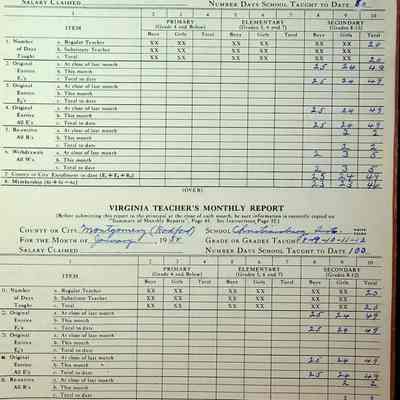 SALARY CLAIMED NUMBER DAYS SCHOOL TAUGHT TO DATE 80
1 2 3 4 5 6 7 8 9 10
ITEM PRIMARY (Grade 4 and Below) ELEMENTARY (Grades 5, 6 and 7) SECONDARY (Grades 8-12)
Boys Girls Total Boys Girls Total Boys Girls Total
1. Number a. Regular Teacher XX XX XX XX XX XX 20
of Days b. Substitute Teacher XX XX XX XX XX XX
Taught c. Total XX XX XX XX XX XX 20
2. Original a. At close of last month 25 24 49
Entries b. This month
E₁'s c. Total to date 25 24 49
3. Original a. At close of last month
Entries b. This month
E₂'s c. Total to date
4. Original a. At close of last month 25 24 49
Entries b. This month
All E's c. Total to date 25 24 49
5. Re-entries a. At close of last month 2 2
All R's b. This month
c. Total to date 2 2
6. Withdrawals a. At close of last month 2 3 5
All W's b. This month
c. Total to date 2 3 5
7. County or City Enrollment to date 25 24 49
8. Membership 23 23 46
(OVER)
VIRGINIA TEACHER'S MONTHLY REPORT
(Before submitting this report to the principal at the close of each month, be sure information is correctly copied on
"Summary of Monthly Reports", Page 44. See Instructions, Page 32.)
COUNTY OR CITY Montgomery (Radford) SCHOOL Christiansburg Inst.
FOR THE MONTH OF January 195 GRADE OR GRADES TAUGHT 8-9-10-11-12
SALARY CLAIMED NUMBER DAYS SCHOOL TAUGHT TO DATE 100
1 2 3 4 5 6 7 8 9 10
ITEM PRIMARY (Grade 4 and Below) ELEMENTARY (Grades 5, 6 and 7) SECONDARY (Grades 8-12)
Boys Girls Total Boys Girls Total Boys Girls Total
1. Number a. Regular Teacher XX XX XX XX XX XX 20
of Days b. Substitute Teacher XX XX XX XX XX XX
Taught c. Total XX XX XX XX XX XX 20
2. Original a. At close of last month 25 24 49
Entries b. This month
c. Total to date 25 24 49
3. Original a. At close of last month
Entries b. This month
c. Total to date
4. Original a. At close of last month 25 24 49
Entries b. This month
All E's c. Total to date 25 24 49
5. Re-entries a. At close of last month 2 2
All R's b. This month
c. Total to date 2 2